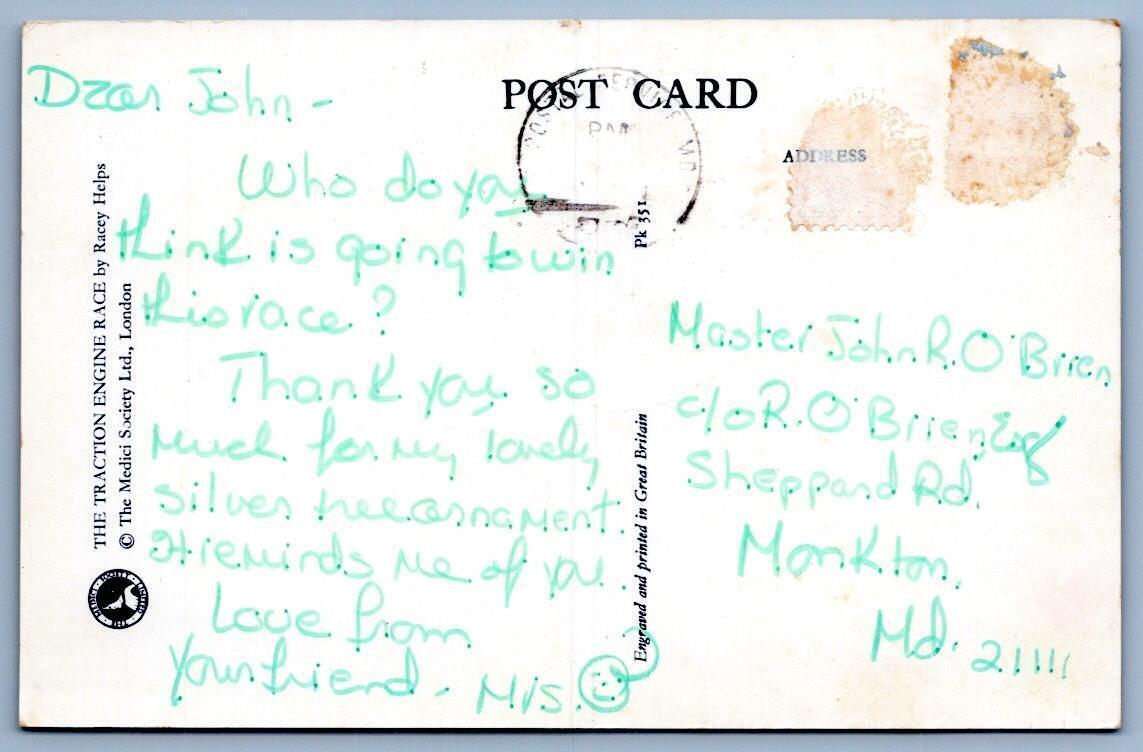 POST CARD
ADDRESS
Dear John -
Who do you
think is going to win
this race?
Thank you so
much for my lovely
silver tree ornament.
It reminds me of you.
Love from
your friend - Mrs.
THE TRACTION ENGINE RACE by Racey Helps
© The Medici Society Ltd., London
THE MEDICI SOCIETY LIMITED
Pk 351
Engraved and printed in Great Britain
Master John R. O'Brien
c/o R. O'Brien, Esq
Sheppard Rd.
Monkton,
Md. 21111
POSTAL SERVICE MD
PM